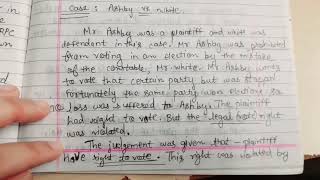 Case: Ashby vs white.
Mr. Ashby was a plaintiff and white was
defendent in this case. Mr Ashby was prohibited
from voting in an election by the mistake
of the constable, Mr. white. Mr Ashby wants
to vote that certain party but was stopped
Fortunately the same party won election. So
no loss was suffered to Ashby. The plaintiff
had right to vote. But the legal right
was violated.
The judgement was given that - plaintiff
have right to vote. This right was violated by